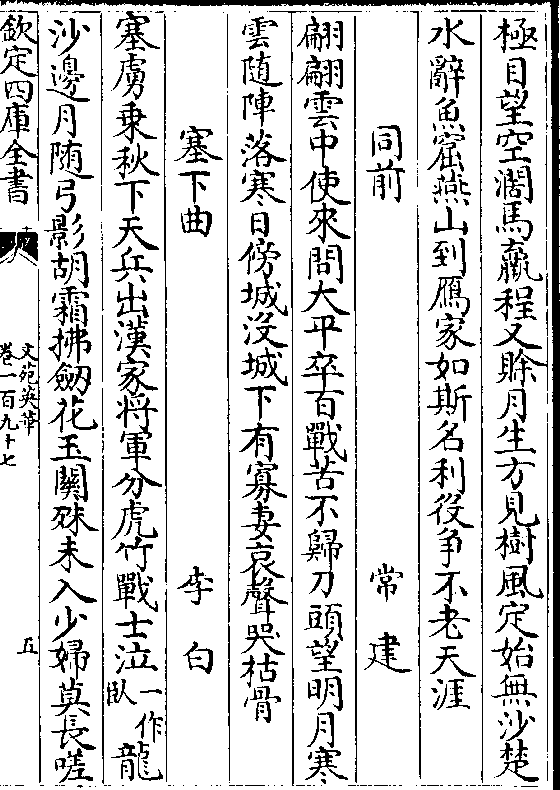 極目望空濶馬羸程又賖月生方見樹風定始無沙楚
水辭魚窟燕山到鴈家如斯名利役爭不老天涯
同前 常建
翩翩雲中使來問大平卒百戰苦不歸刀頭望明月寒
雲随陣落寒日傍城沒城下有寡妻哀聲哭枯骨
塞下曲 李白
塞虜乗秋下天兵出漢家將軍分虎竹戰士泣一作臥龍
沙邊月随弓影胡霜拂劒花玉關殊未入少婦莫長嗟
欽定四庫全書
文苑英華
卷一百九十七
五